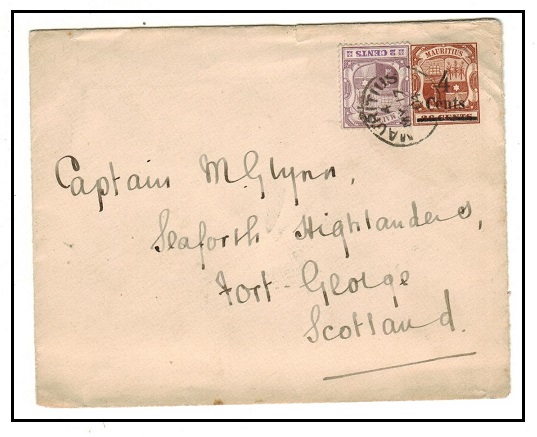 MAURITIUS
4
Cents
36 CENTS
2 CENTS
MAURITIUS
Captain McGlynn,
Seaforth Highlanders,
Fort-George
Scotland.